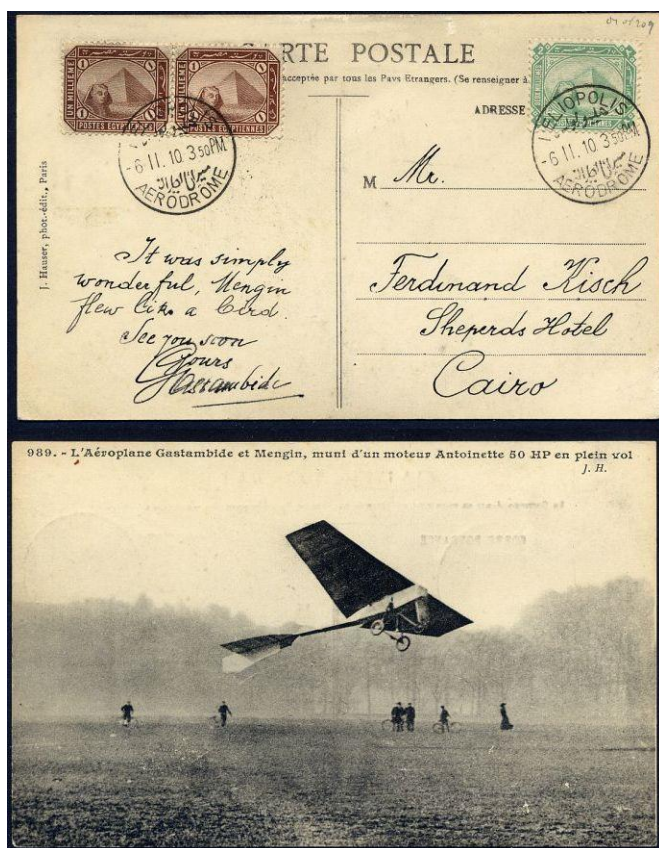 CARTE POSTALE
acceptée par tous les Pays Etrangers. (Se renseigner à
ADRESSE
1 UN MILLIEME 1
POSTES EGYPTIENNES
1 UN MILLIEME 1
POSTES EGYPTIENNES
2
HELIOPOLIS
-6 II. 10 3 50 PM
AERODROME
HELIOPOLIS
-6 II. 10 3 50 PM
AERODROME
J. Hauser, phot.-édit., Paris
It was simply
wonderful, Mengin
flew like a bird.
See you soon
Yours
Gastambide
M Mr.
Ferdinand Kisch
Sheperds Hotel
Cairo
989. - L'Aéroplane Gastambide et Mengin, muni d'un moteur Antoinette 50 HP en plein vol
J. H.